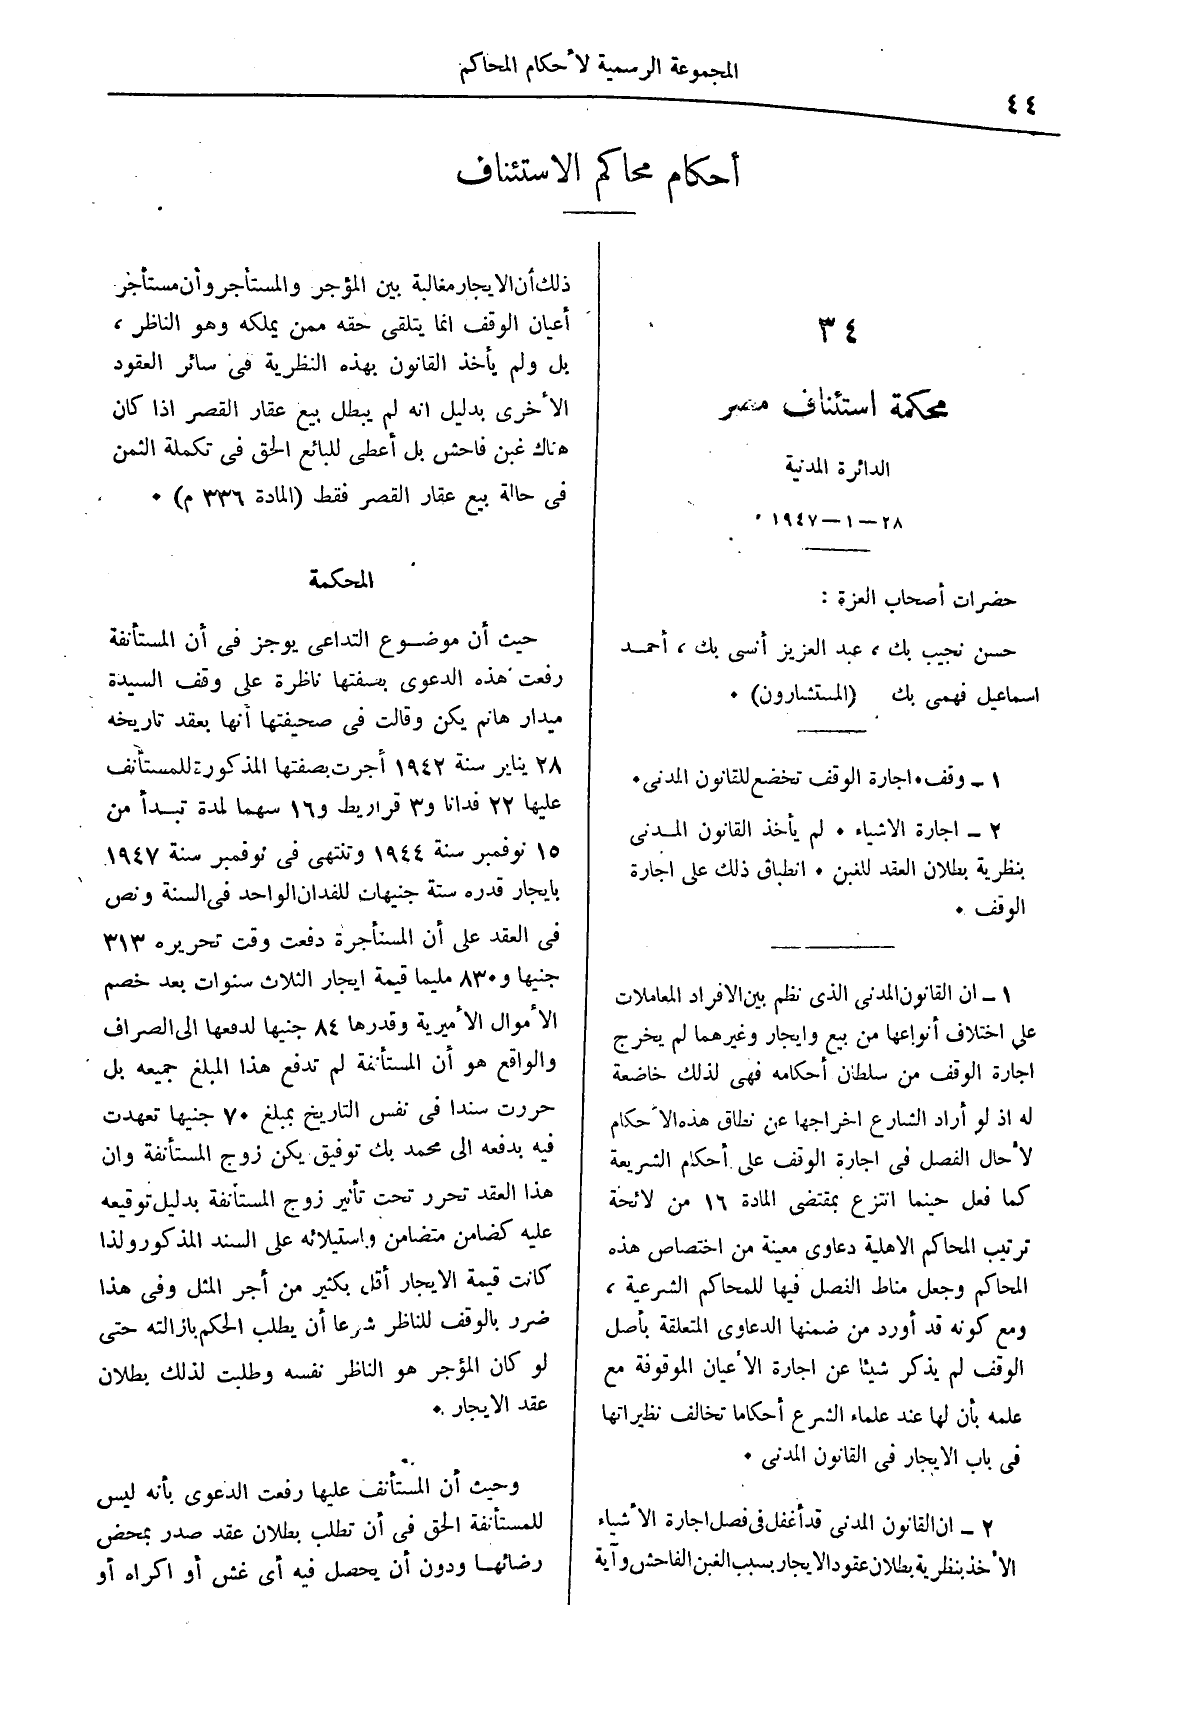 المجموعة الرسمية لأحكام المحاكم
٤٤
أحكام محاكم الاستئناف
٣٤
محكمة استئناف مصر
الدائرة المدنية
٢٨ – ١ – ١٩٤٧ .
حضرات أصحاب العزة :
حسن نجيب بك ، عبد العزيز أنسى بك ، أحمد
اسماعيل فهمى بك (المستشارون) .
١ – وقف . اجارة الوقف تخضع للقانون المدنى .
٢ – اجارة الاشياء . لم يأخذ القانون المدنى
بنظرية بطلان العقد للغبن . انطباق ذلك على اجارة
الوقف .
١ – ان القانون المدنى الذى نظم بين الافراد المعاملات
على اختلاف أنواعها من بيع وايجار وغيرهما لم يخرج
اجارة الوقف من سلطان أحكامه فهى لذلك خاضعة
له اذ لو أراد الشارع اخراجها عن نطاق هذه الأحكام
لأحال الفصل فى اجارة الوقف على أحكام الشريعة
كما فعل حينما انتزع بمقتضى المادة ١٦ من لائحة
ترتيب المحاكم الاهلية دعاوى معينة من اختصاص هذه
المحاكم وجعل مناط الفصل فيها للمحاكم الشرعية ،
ومع كونه قد أورد من ضمنها الدعاوى المتعلقة بأصل
الوقف لم يذكر شيئا عن اجارة الأعيان الموقوفة مع
علمه بأن لها عند علماء الشرع أحكاما تخالف نظيراتها
فى باب الايجار فى القانون المدنى .
٢ – ان القانون المدنى قد أغفل فى فصل اجارة الأشياء
الأخذ بنظرية بطلان عقود الايجار بسبب الغبن الفاحش وآية
ذلك أن الايجار مغالبة بين المؤجر والمستأجر وأن مستأجر
أعيان الوقف انما يتلقى حقه ممن يملكه وهو الناظر ،
بل ولم يأخذ القانون بهذه النظرية فى سائر العقود
الأخرى بدليل انه لم يبطل بيع عقار القصر اذا كان
هناك غبن فاحش بل أعطى للبائع الحق فى تكملة الثمن
فى حالة بيع عقار القصر فقط (المادة ٣٣٦ م) .
المحكمة
حيث أن موضوع التداعى يوجز فى أن المستأنفة
رفعت هذه الدعوى بصفتها ناظرة على وقف السيدة
ميدار هانم يكن وقالت فى صحيفتها أنها بعقد تاريخه
٢٨ يناير سنة ١٩٤٢ أجرت بصفتها المذكورة للمستأنف
عليها ٢٢ فدانا و٣ قراريط و١٦ سهما لمدة تبدأ من
١٥ نوفمبر سنة ١٩٤٤ وتنتهى فى نوفمبر سنة ١٩٤٧
بايجار قدره ستة جنيهات للفدان الواحد فى السنة ونص
فى العقد على أن المستأجرة دفعت وقت تحريره ٣١٣
جنيها و٨٣٠ مليما قيمة ايجار الثلاث سنوات بعد خصم
الأموال الأميرية وقدرها ٨٤ جنيها لدفعها الى الصراف
والواقع هو أن المستأنفة لم تدفع هذا المبلغ جميعه بل
حررت سندا فى نفس التاريخ بمبلغ ٧٠ جنيها تعهدت
فيه بدفعه الى محمد بك توفيق يكن زوج المستأنفة وان
هذا العقد تحرر تحت تأثير زوج المستأنفة بدليل توقيعه
عليه كضامن متضامن واستيلائه على السند المذكور ولذا
كانت قيمة الايجار أقل بكثير من أجر المثل وفى هذا
ضرر بالوقف للناظر شرعا أن يطلب الحكم بازالته حتى
لو كان المؤجر هو الناظر نفسه وطلبت لذلك بطلان
عقد الايجار .
وحيث أن المستأنف عليها رفعت الدعوى بأنه ليس
للمستأنفة الحق فى أن تطلب بطلان عقد صدر بمحض
رضائها ودون أن يحصل فيه أى غش أو اكراه أو